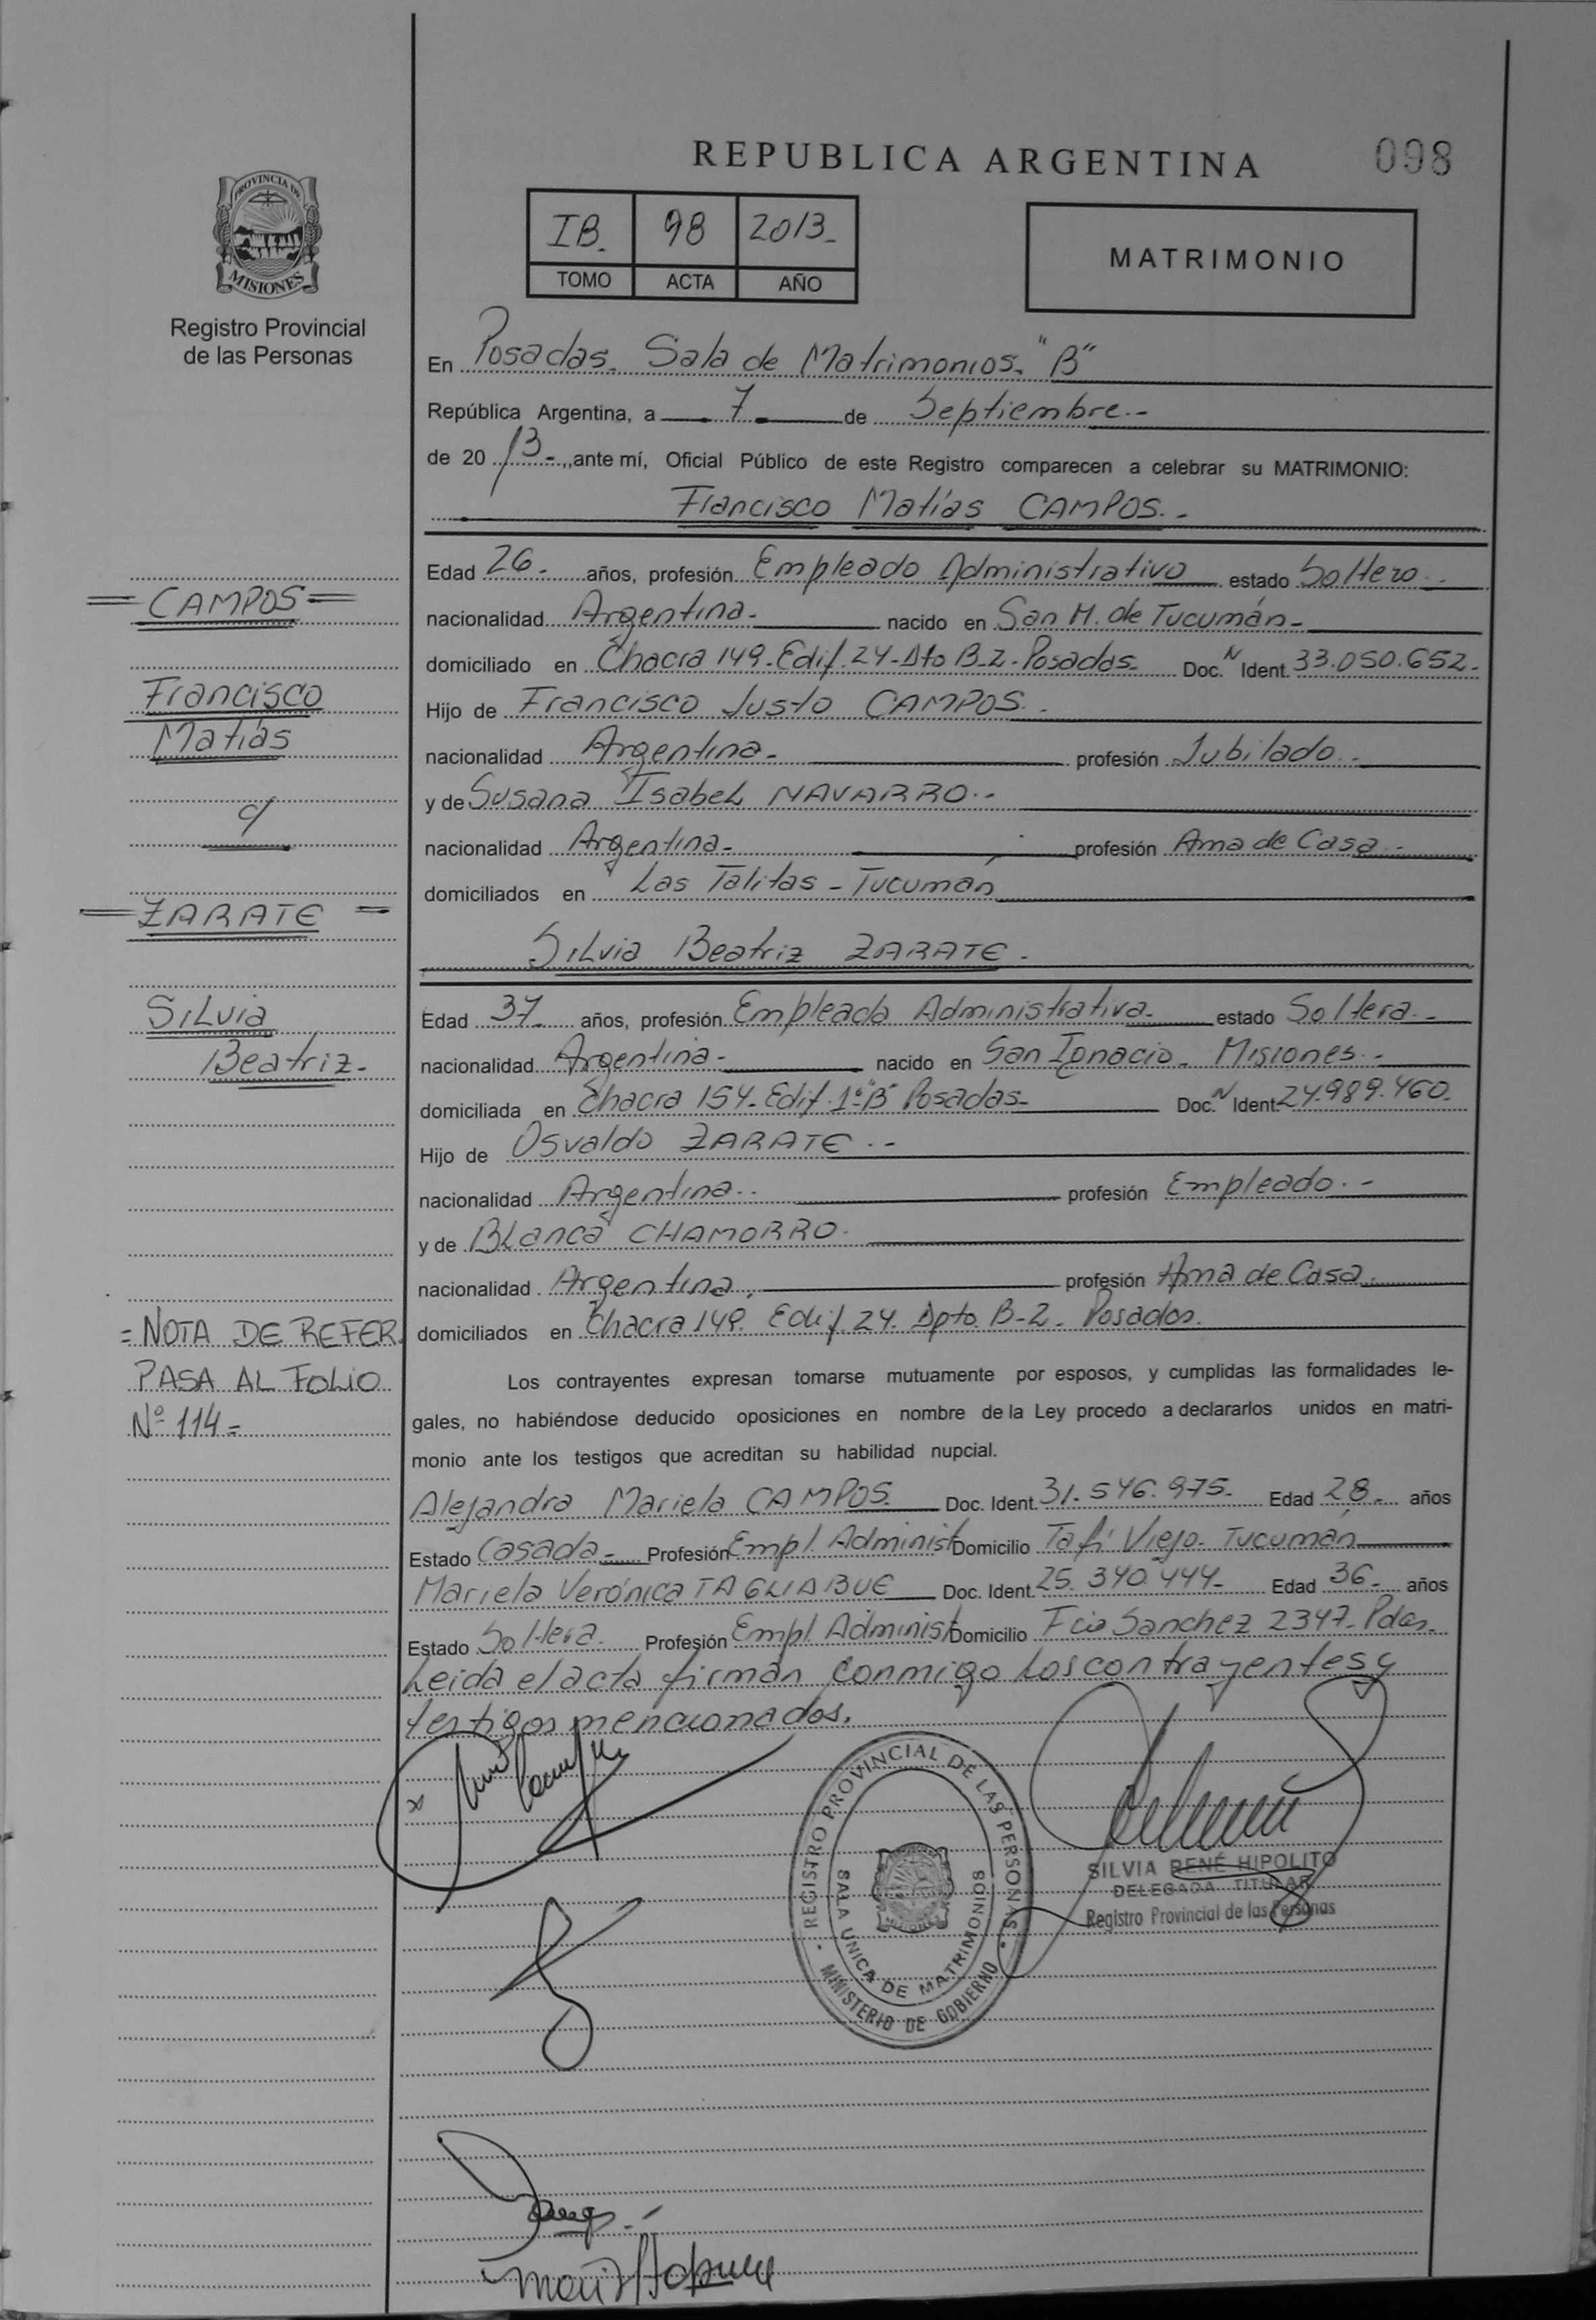 REPUBLICA ARGENTINA
098
PROVINCIA DE
MISIONES
Registro Provincial
de las Personas
IB. 98 2013-
TOMO ACTA AÑO
MATRIMONIO
En Posadas. Sala de Matrimonios. "B"
República Argentina, a 7 de Septiembre.-
de 20 13-, ante mí, Oficial Público de este Registro comparecen a celebrar su MATRIMONIO:
Francisco Matías CAMPOS.-
Edad 26- años, profesión Empleado Administrativo estado Soltero.-
nacionalidad Argentina- nacido en San M. de Tucumán-
domiciliado en Chacra 149-Edif.24-Dto B-2-Posadas- Doc. N Ident. 33.050.652-
Hijo de Francisco Justo CAMPOS.-
nacionalidad Argentina- profesión Jubilado.-
y de Susana Isabel NAVARRO.-
nacionalidad Argentina- profesión Ama de Casa.-
domiciliados en Las Talitas - Tucumán
Silvia Beatriz ZARATE.
Edad 37- años, profesión Empleada Administrativa- estado Soltera.-
nacionalidad Argentina- nacido en San Ignacio- Misiones.-
domiciliada en Chacra 154-Edif.1º"B" Posadas- Doc. N Ident. 24.989.460.
Hijo de Osvaldo ZARATE.-
nacionalidad Argentina.- profesión Empleado.-
y de Blanca CHAMORRO.
nacionalidad Argentina. profesión Ama de Casa.
domiciliados en Chacra 149. Edif. 24. Dpto. B-2- Posadas.
Los contrayentes expresan tomarse mutuamente por esposos, y cumplidas las formalidades le-
gales, no habiéndose deducido oposiciones en nombre de la Ley procedo a declararlos unidos en matri-
monio ante los testigos que acreditan su habilidad nupcial.
Alejandra Mariela CAMPOS Doc. Ident. 31.546.975- Edad 28- años
Estado Casada- Profesión Empl. Administ Domicilio Tafí Viejo- Tucumán
Mariela Verónica TAGLIABUE Doc. Ident. 25.340.444- Edad 36- años
Estado Soltera. Profesión Empl. Administ Domicilio Fcio Sanchez 2347-Pdas-
Leida el acta firman conmigo los contrayentes y
testigos mencionados.
=CAMPOS=
Francisco
Matías
c/
=ZARATE=
Silvia
Beatriz-
=NOTA DE REFER.
PASA AL FOLIO
Nº 114=
REGISTRO PROVINCIAL DE LAS PERSONAS
MINISTERIO DE GOBIERNO
SALA UNICA DE MATRIMONIOS
SILVIA RENÉ HIPOLITO
DELEGADA TITULAR
Registro Provincial de las Personas